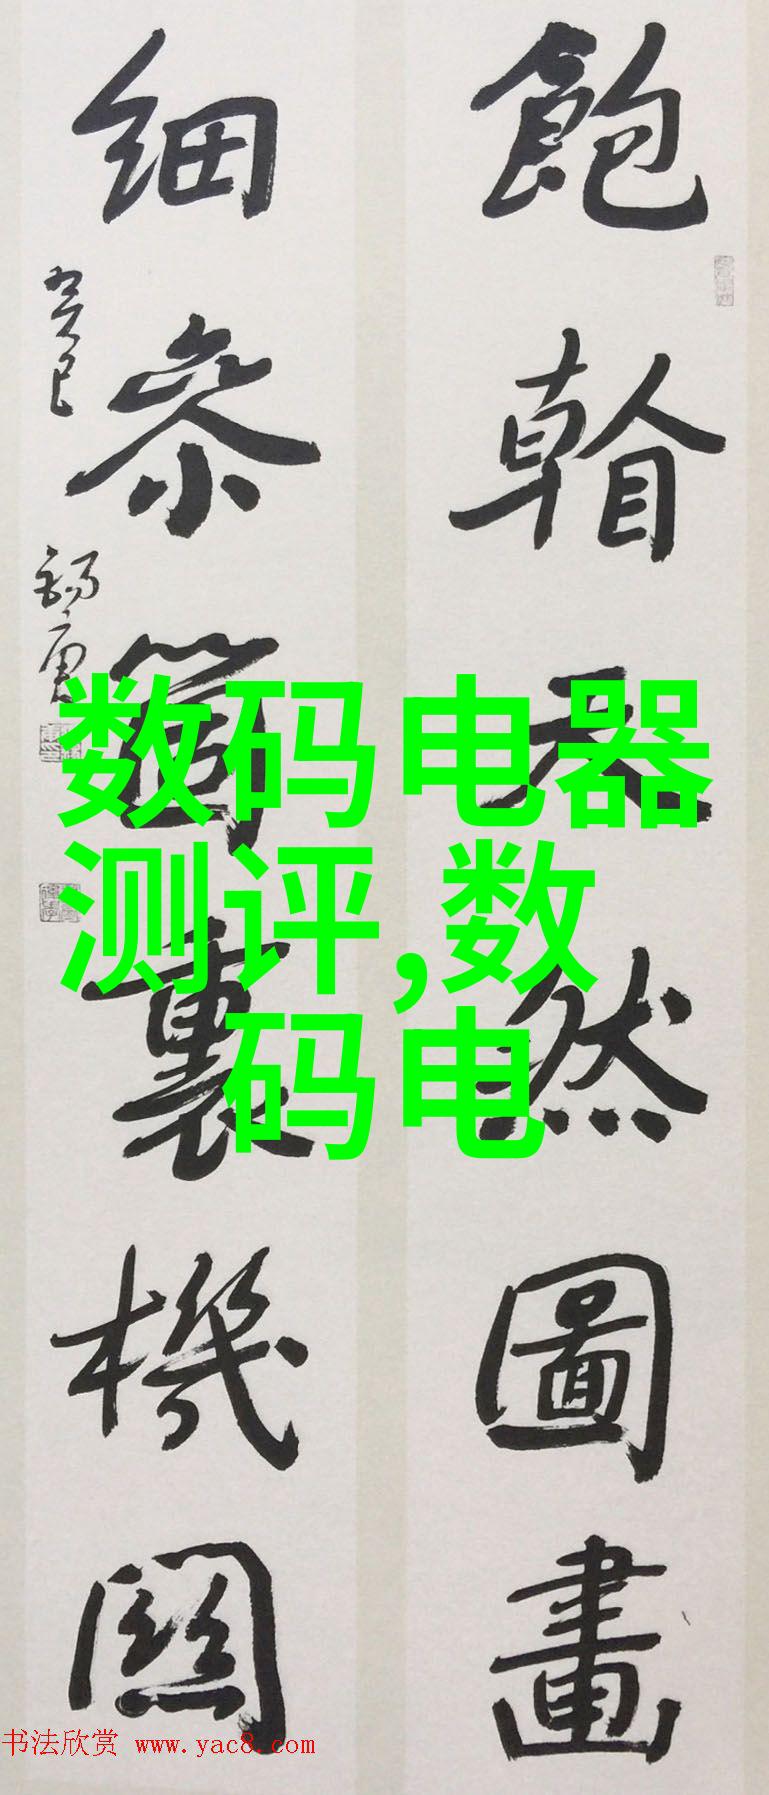 飽天然圖畫
細參箇裏機關
癸巳
数码电器
测评,数
码电
书法欣赏 www.yac8.com